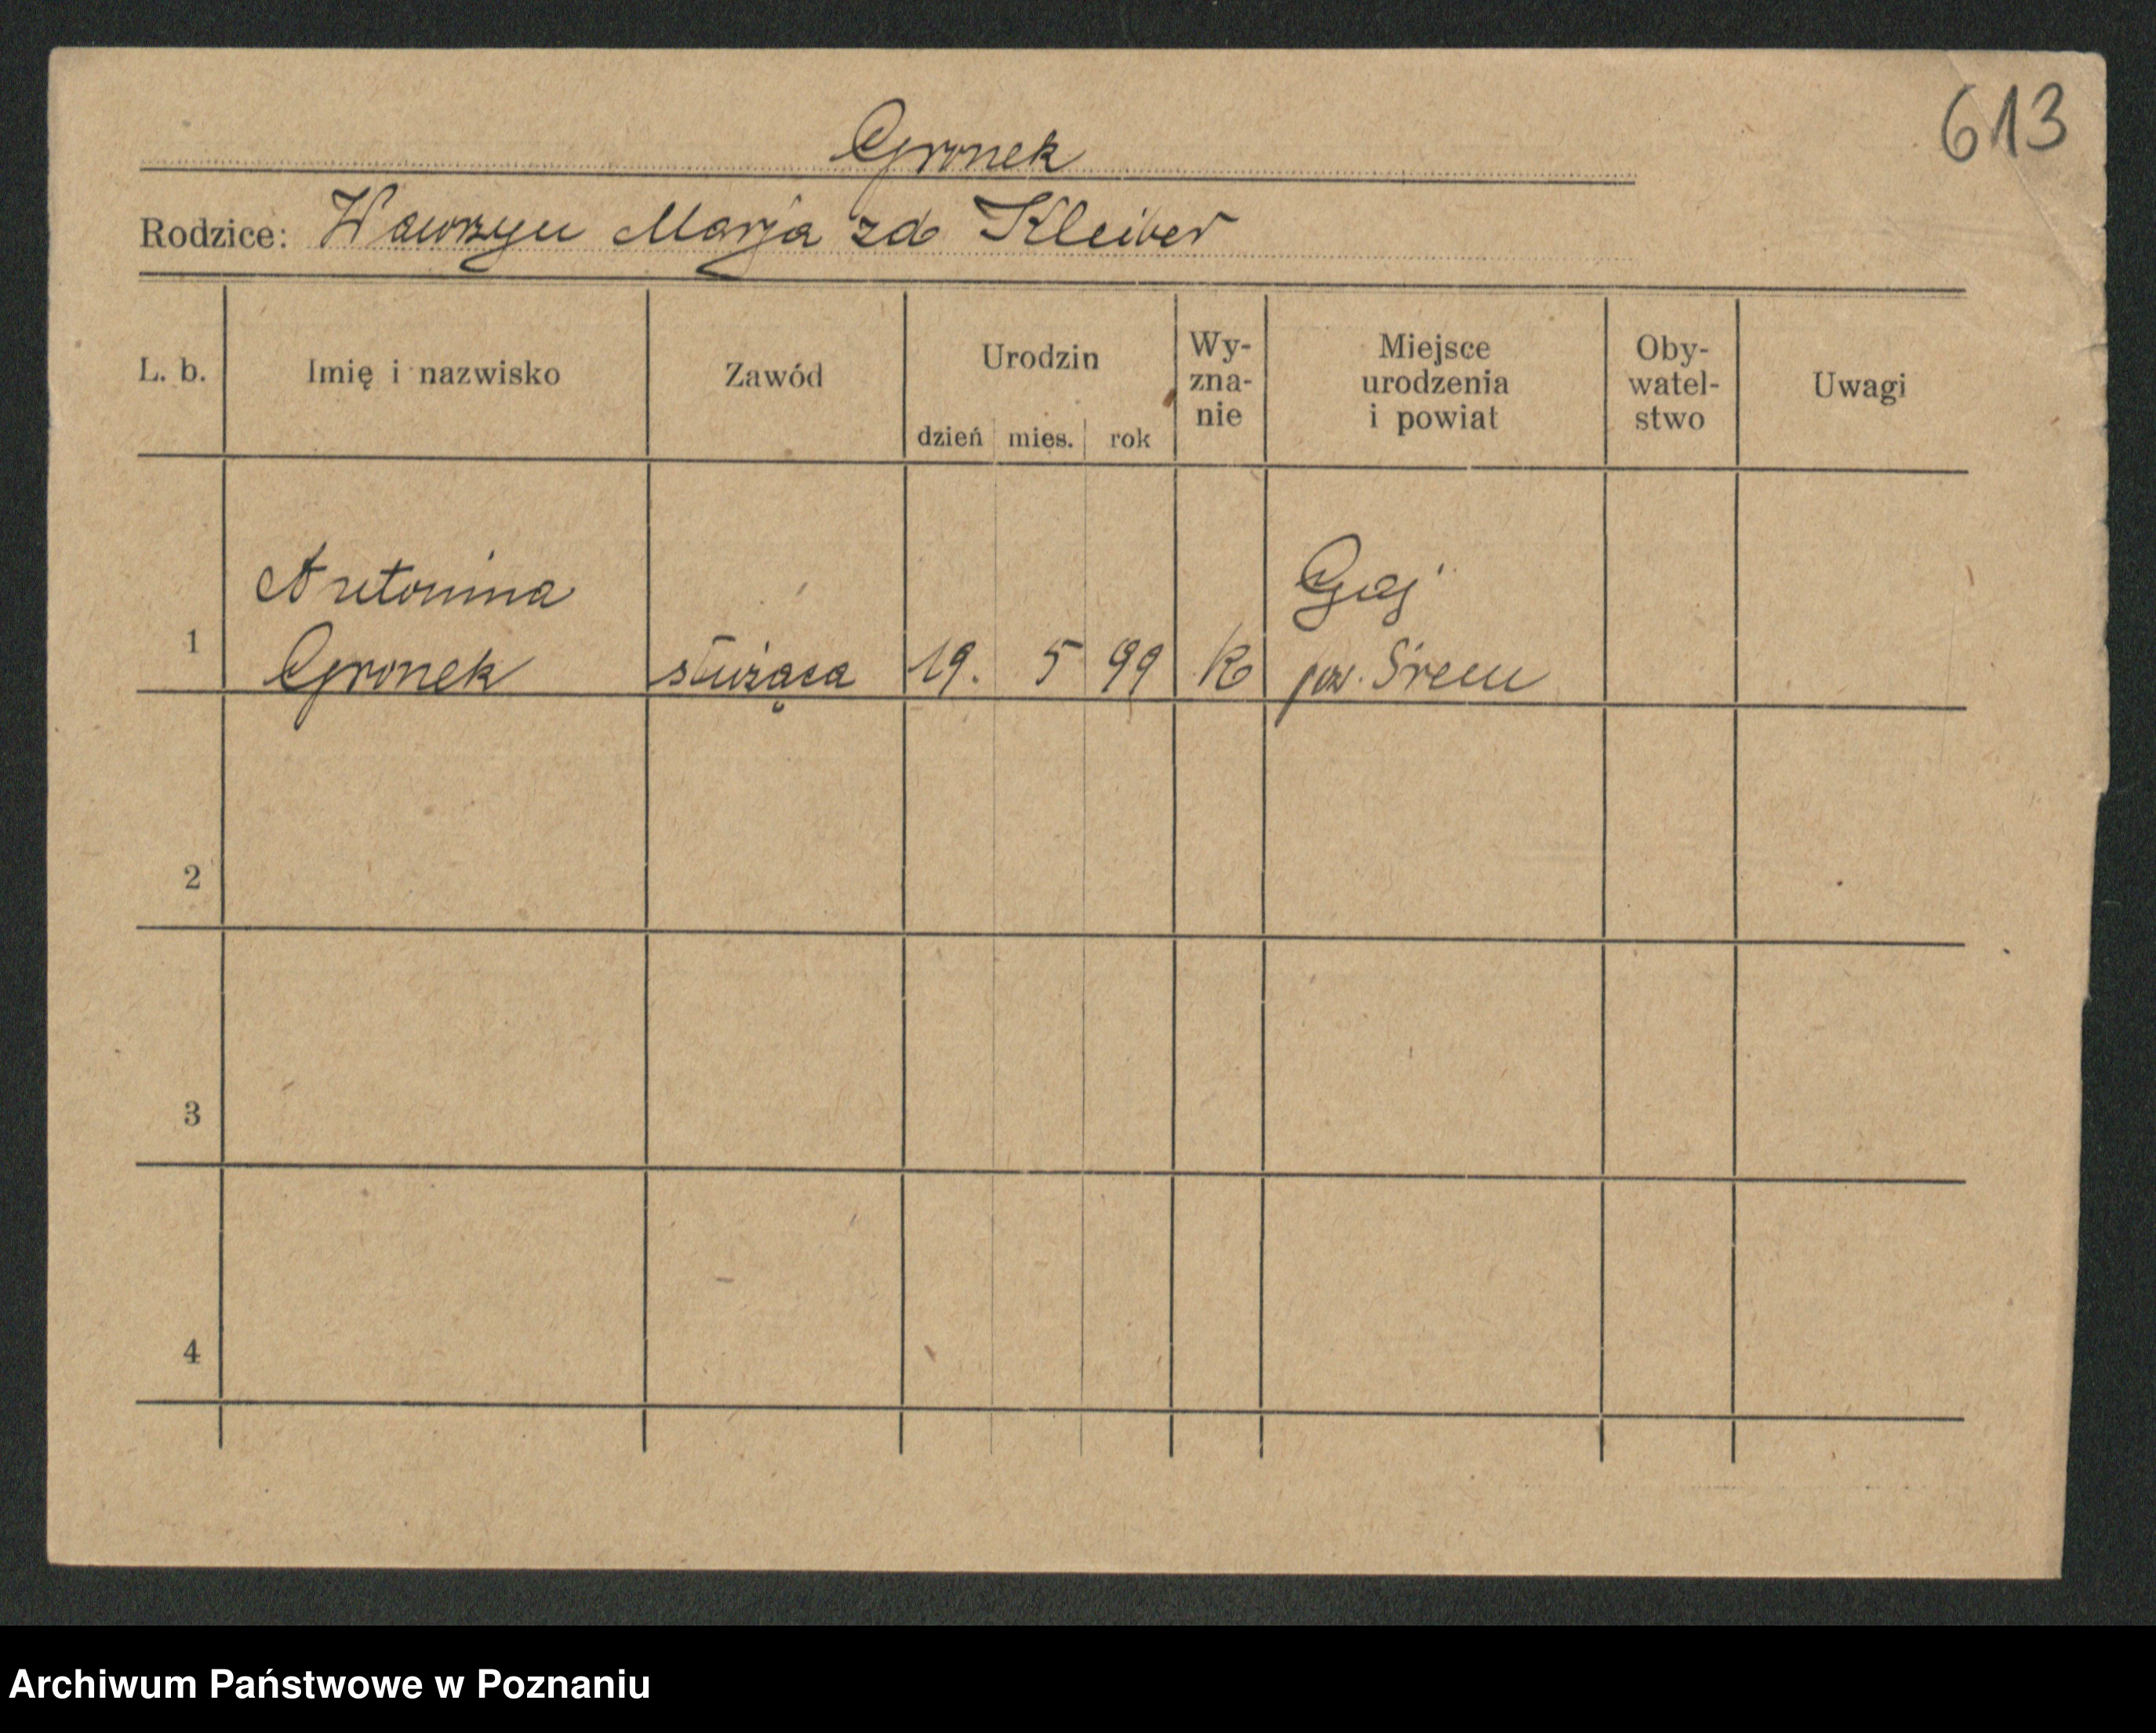 613
Gronek
Rodzice: Wawrzyn Marja zd Kleiber
L. b. Imię i nazwisko Zawód Urodzin dzień mies. rok Wy-zna-nie Miejsce urodzenia i powiat Oby-watel-stwo Uwagi
Antonina Gaj
1 Gronek służąca 19. 5 99 K pow. Śrem
2
3
4
Archiwum Państwowe w Poznaniu